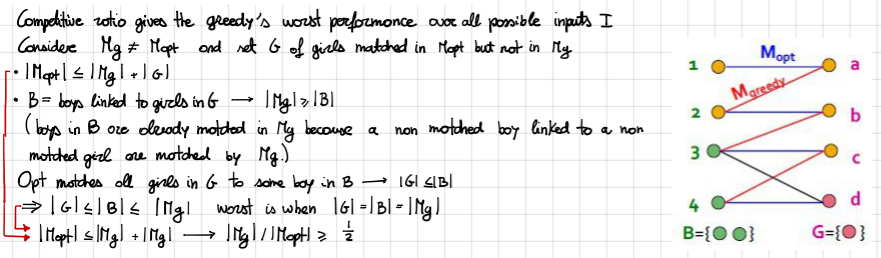 Competitive ratio gives the greedy's worst performance over all possible inputs I
Consider Mg ≠ Mopt and set G of girls matched in Mopt but not in Mg
• |Mopt| ≤ |Mg| + |G|
• B = boys linked to girls in G → |Mg| ≥ |B|
(boys in B are already matched in Mg because a non matched boy linked to a non
matched girl are matched by Mg.)
Opt matches all girls in G to some boy in B → |G| ≤ |B|
⇒ |G| ≤ |B| ≤ |Mg| worst is when |G| = |B| = |Mg|
|Mopt| ≤ |Mg| + |Mg| → |Mg| / |Mopt| ≥ 1/2
Mopt
1 a
Mgreedy
2 b
3 c
4 d
B={ } G={ }